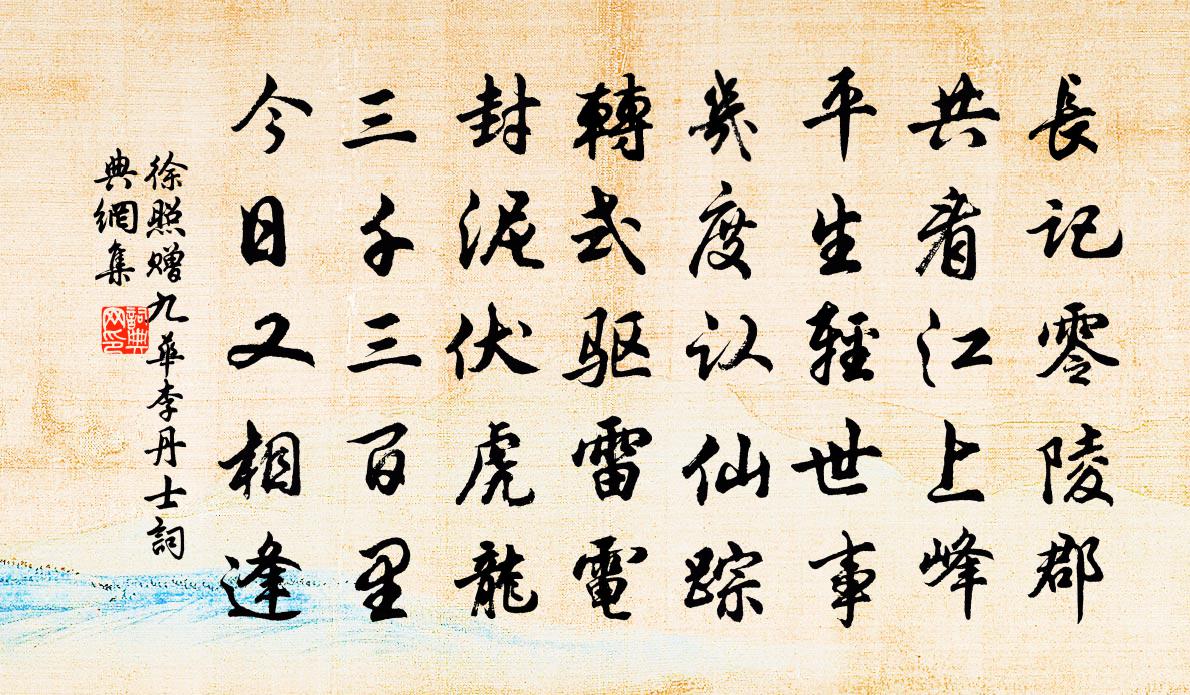 長记零陵郡
共看江上峰
平生輕世事
幾度认仙踪
轉式驱雷電
封泥伏虎龍
三千三百里
今日又相逢
徐照赠九華李丹士詞
典網集
詞典
网印